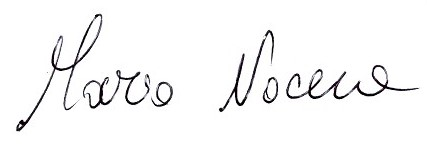 Mario Nocera